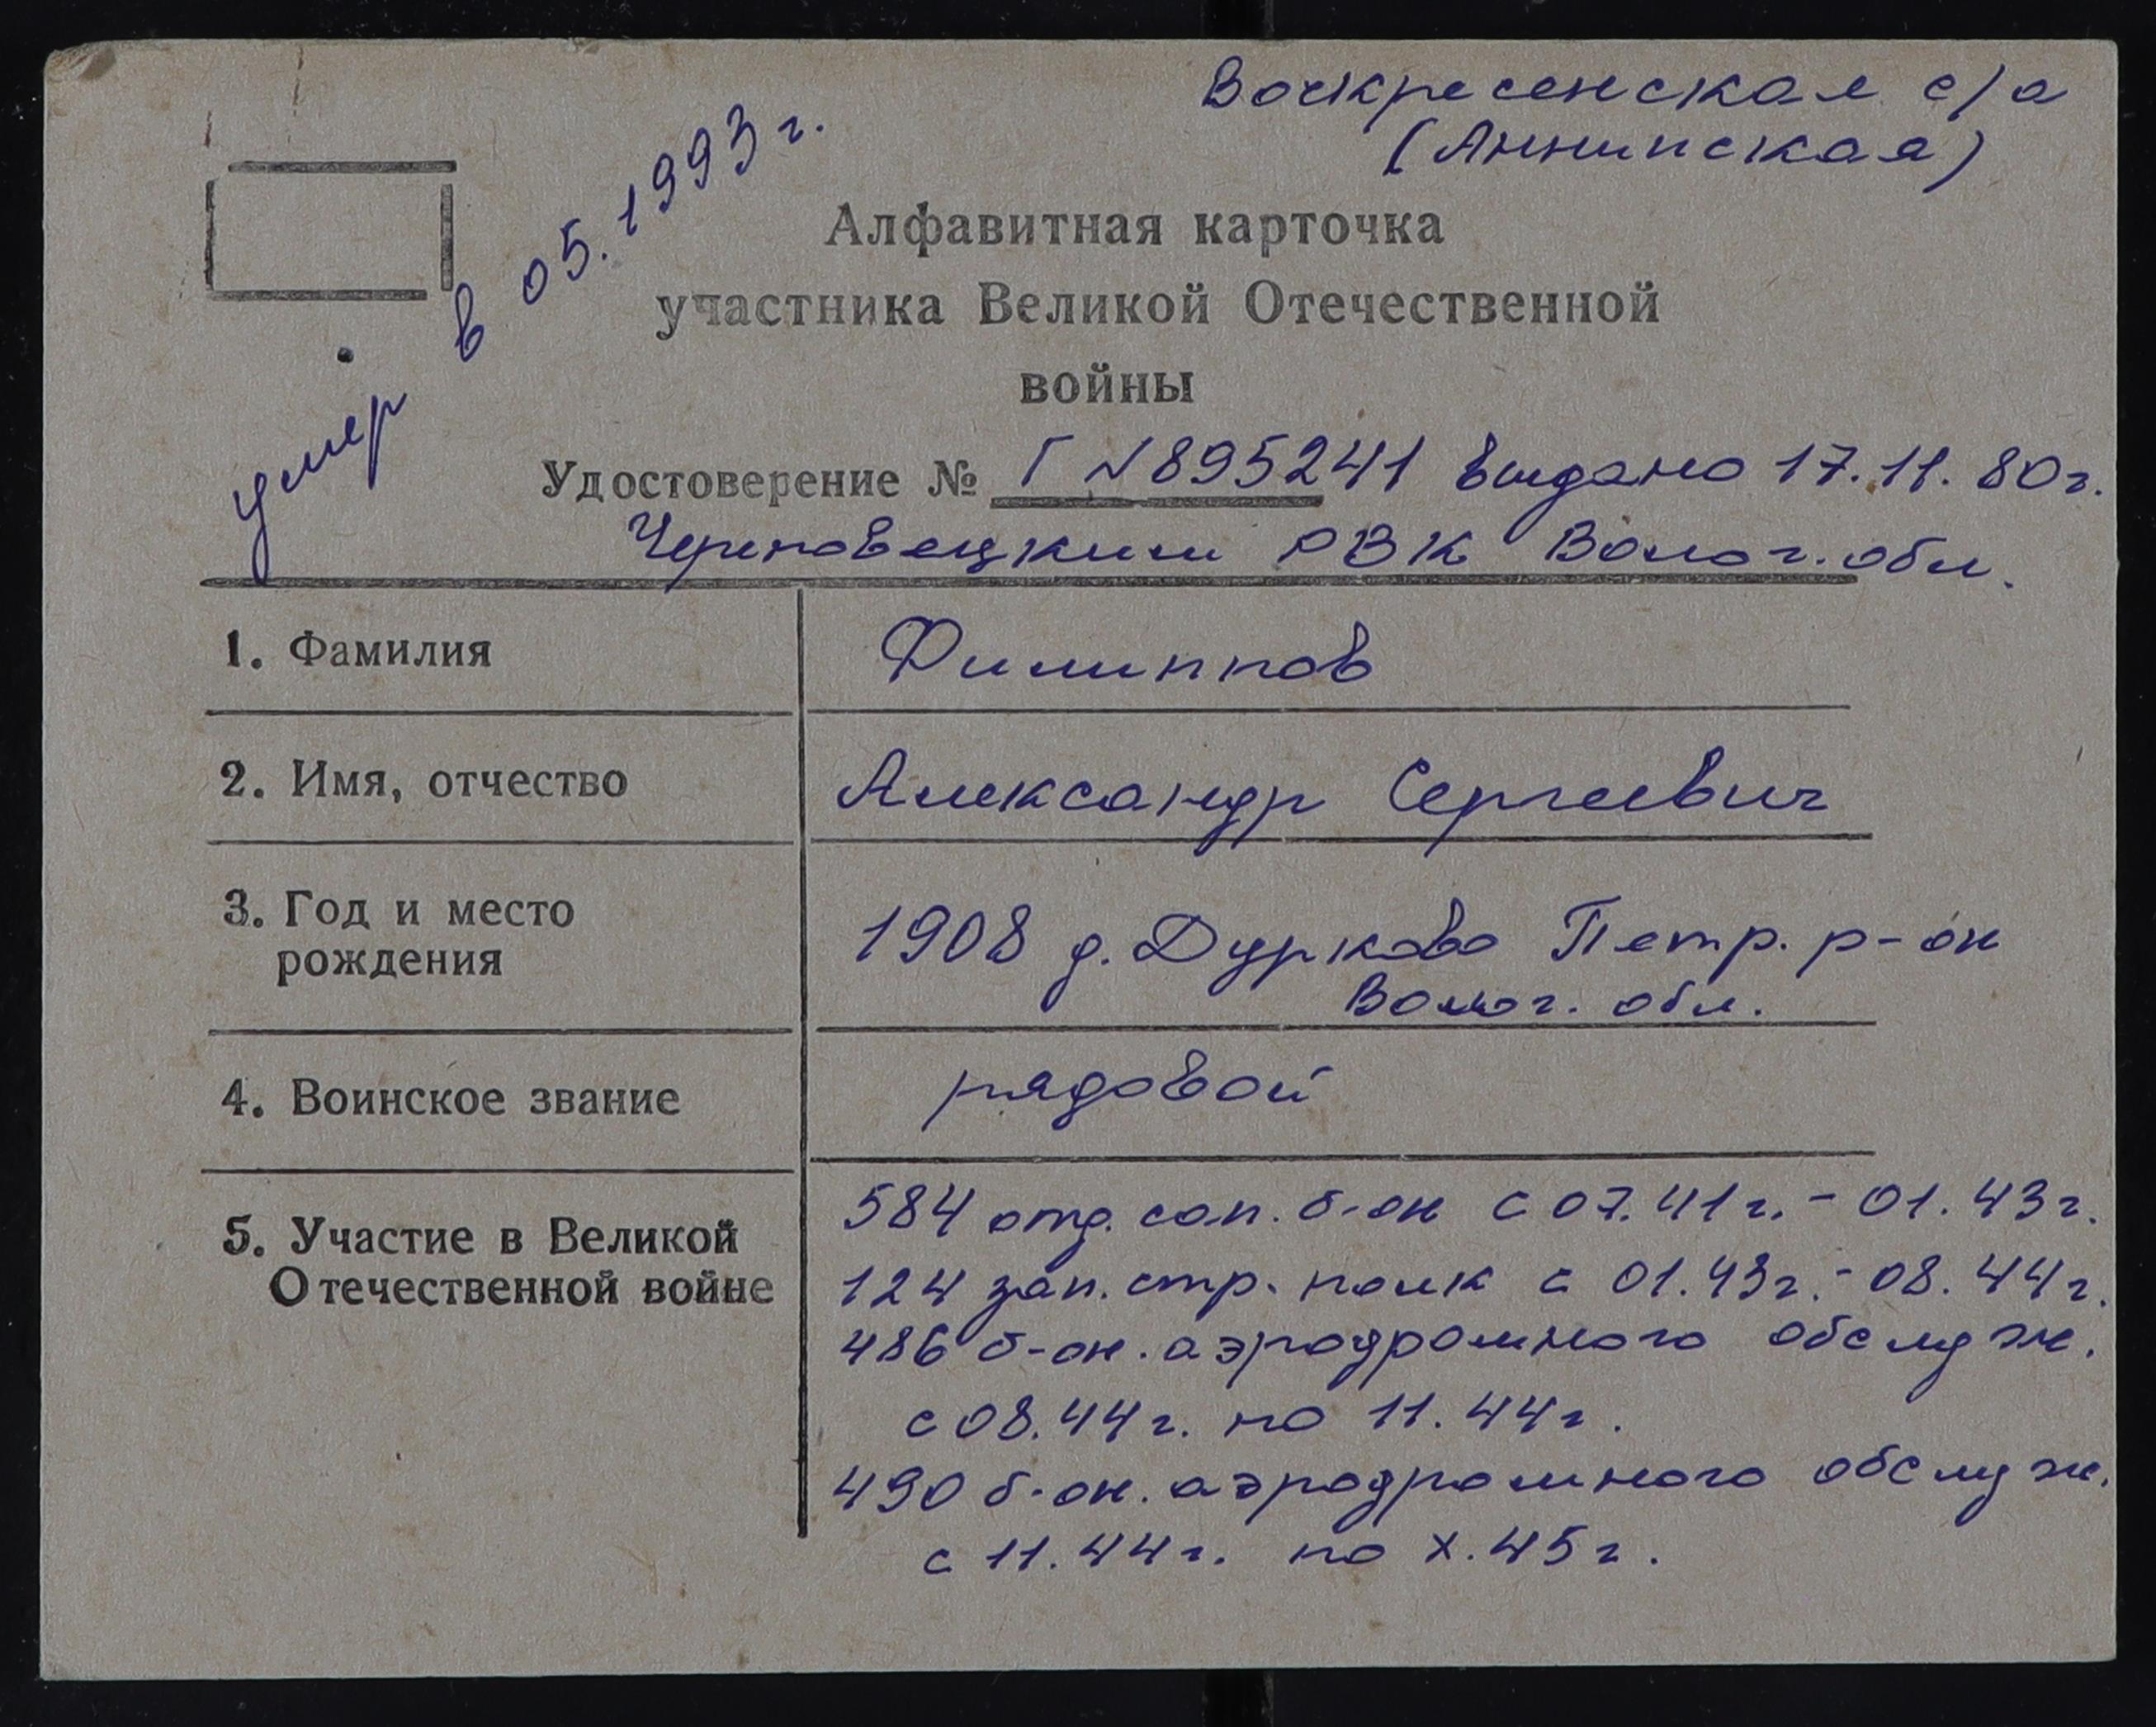 Воскресенская с/а
(Аннинская)
умер в 05.1993г.
Алфавитная карточка
участника Великой Отечественной
войны
Удостоверение № Г №895241 выдано 17.11.80г.
Череповецким РВК Волог. обл.
1. Фамилия
Филиппов
2. Имя, отчество
Александр Сергеевич
3. Год и место
рождения
1908 д. Дурково Петр. р-он
Волог. обл.
4. Воинское звание
рядовой
5. Участие в Великой
Отечественной войне
584 отд. сап. б-он с 07.41г. - 01.43г.
124 зап. стр. полк с 01.43г. - 08.44г.
486 б-он. аэродромного обслуж.
с 08.44г. по 11.44г.
490 б-он. аэродромного обслуж.
с 11.44г. по X.45г.